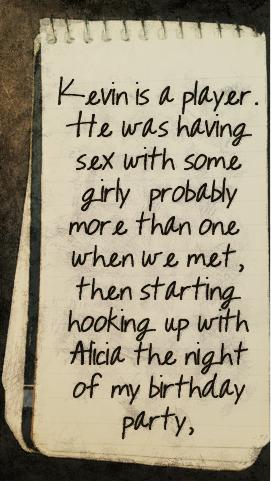 Kevin is a player.
He was having
sex with some
girly probably
more than one
when we met,
then starting
hooking up with
Alicia the night
of my birthday
party,